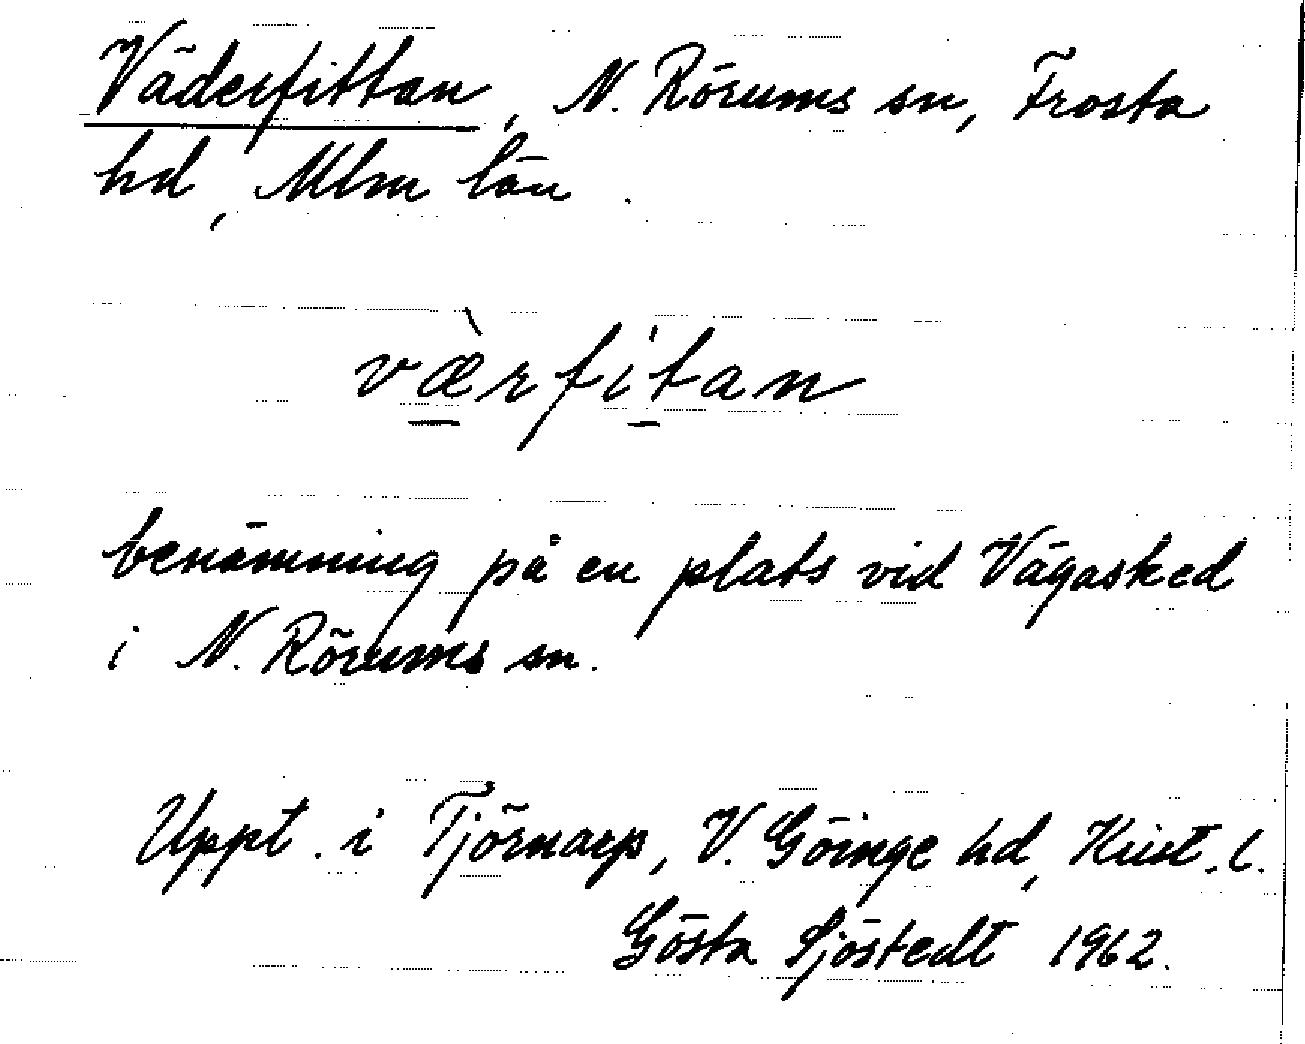 Väderfittan, N. Rörums sn, Frosta
hd, Mlm län.
væ̀rfi'tan
benämning på en plats vid Vägasked
i N. Rörums sn.
Uppt. i Tjörnarp, V. Göinge hd, Krist. l.
Gösta Sjöstedt 1962.